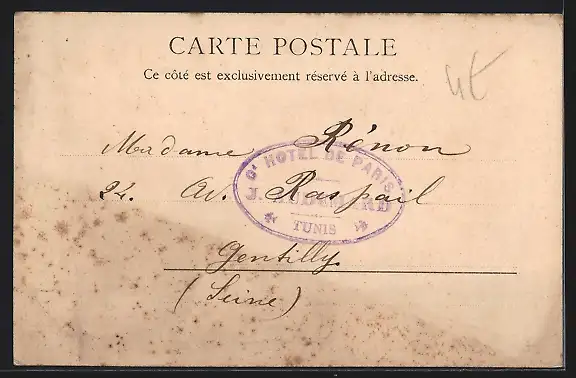 CARTE POSTALE
Ce côté est exclusivement réservé à l'adresse.
4t
Madame Rénon
24. Av. Raspail
Gentilly
(Seine)
Gd HOTEL DE PARIS
J.
TUNIS